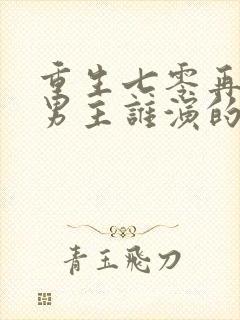 重生七零再
男主誰演的
青玉飛刀